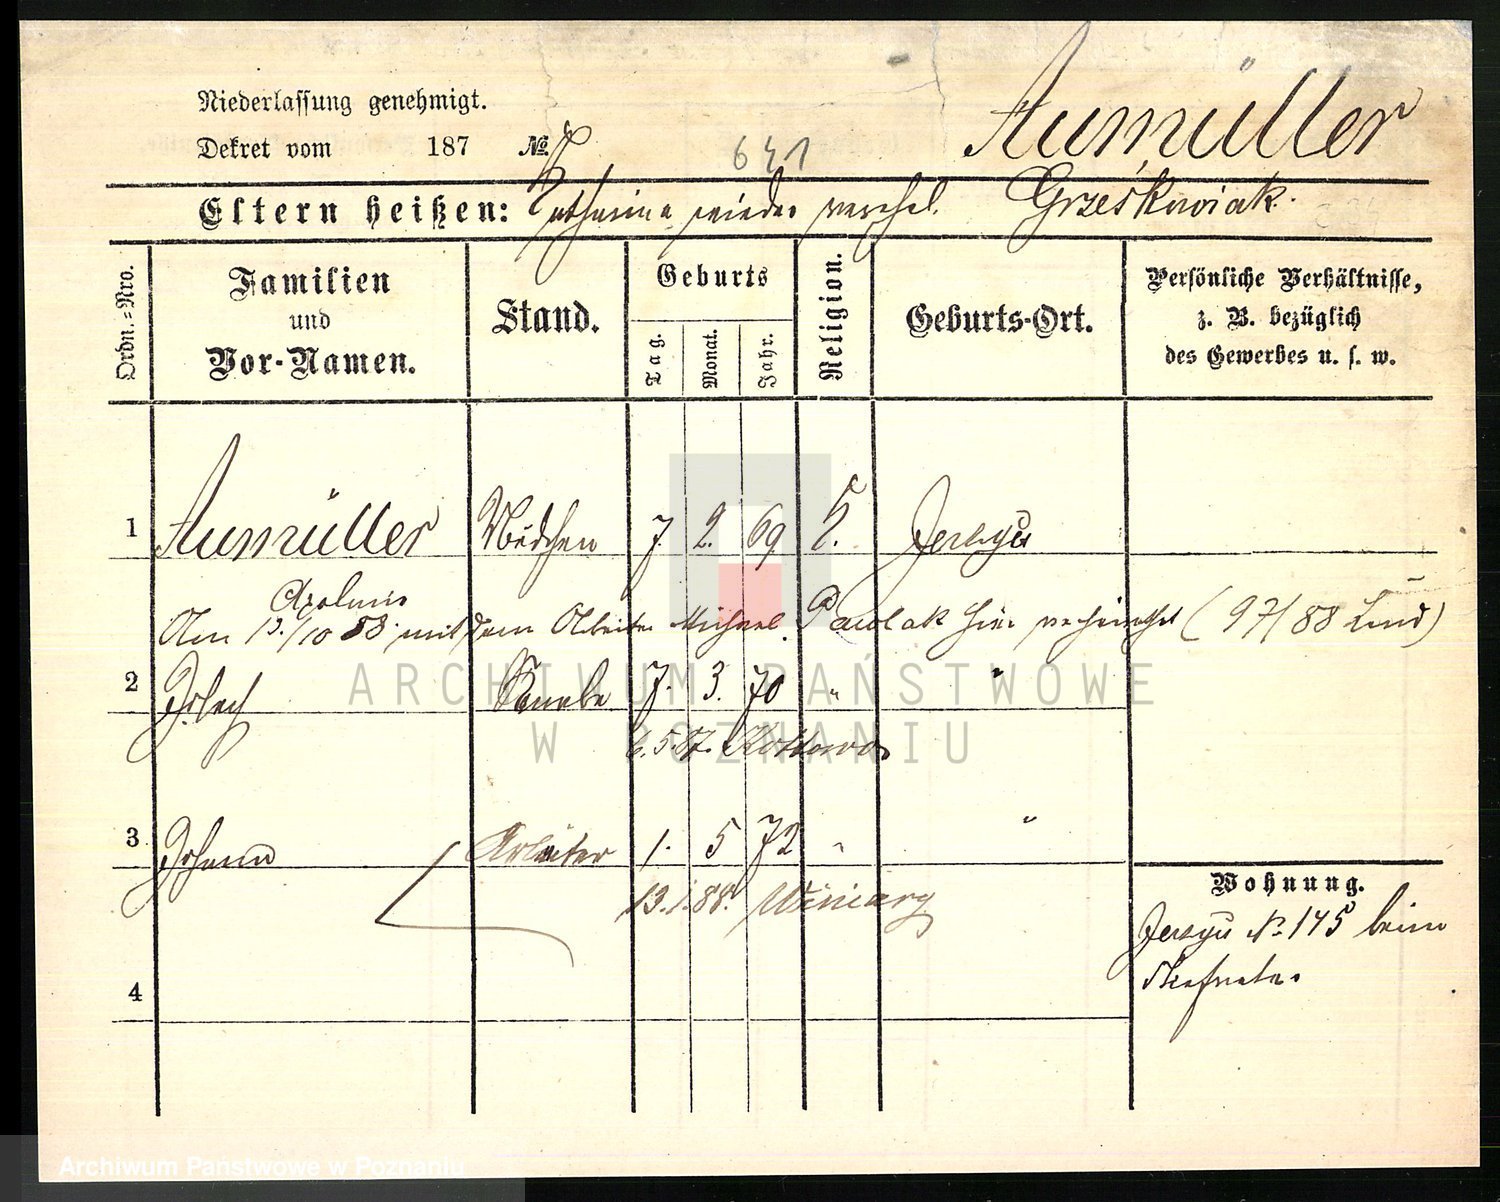 Niederlassung genehmigt.
Dekret vom 187 №
641
Aumüller
Eltern heißen: Katharina wieder verehel. Grześkowiak.
Ordn.=Nro.
Familien und Vor-Namen.
Stand.
Geburts
Tag.
Monat.
Jahr.
Religion.
Geburts-Ort.
Persönliche Verhältnisse, z. B. bezüglich des Gewerbes u. s. w.
1 Aumüller Mädchen 7. 2. 69 k. Jerzyce
Am 13./10 88 mit dem Arbeiter Michael Pawlak hier verheirathet (97/88 )
2 Knabe 7. 3. 70 " "
6. 5. 87.
3 Johann Arbeiter 1. 5 72 " "
13. 1. 88. Winiary
4
Wohnung.
Jerzyce № 145 beim
ARCHIWUM PAŃSTWOWE
W POZNANIU
Archiwum Państwowe w Poznaniu